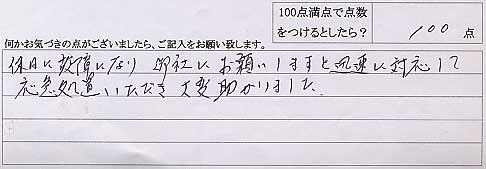 100点満点で点数
をつけるとしたら？
100 点
何かお気づきの点がございましたら、ご記入をお願い致します。
休日に故障になり 御社に お願いしますと迅速に対応して
応急処置いただき 大変助かりました